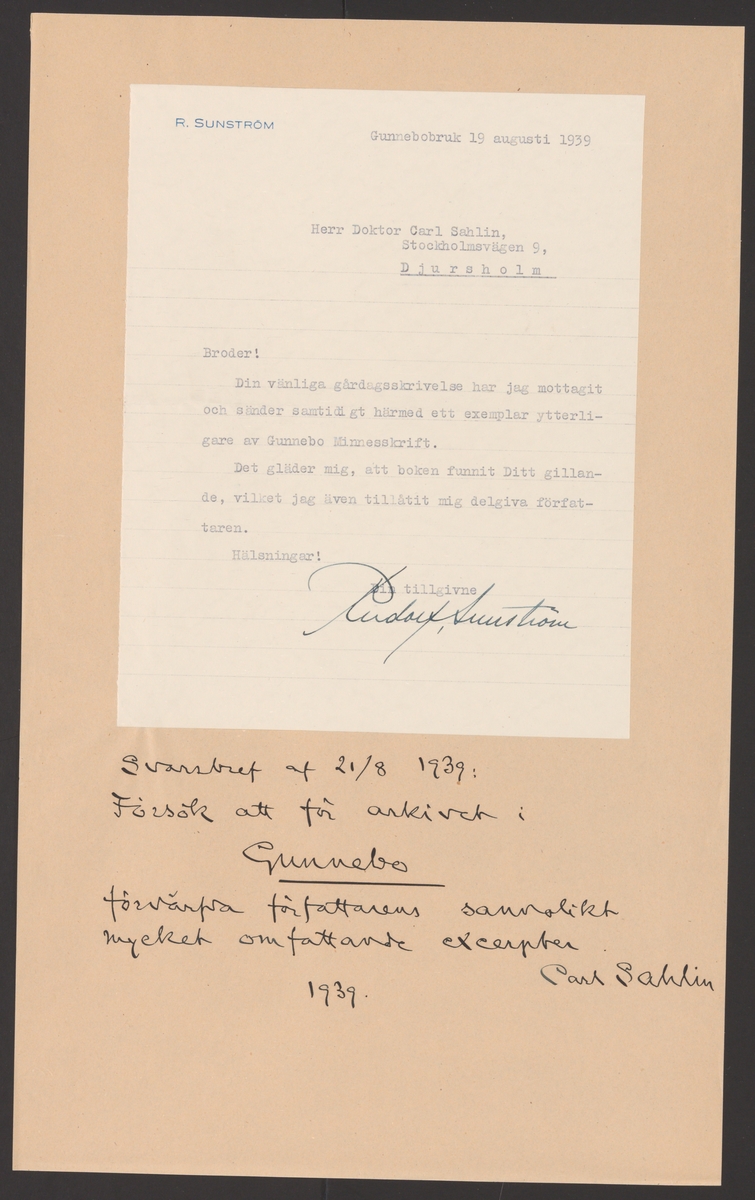 R. SUNSTRÖM
Gunnebobruk 19 augusti 1939
Herr Doktor Carl Sahlin,
Stockholmsvägen 9,
Djursholm
Broder!
Din vänliga gårdagsskrivelse har jag mottagit
och sänder samtidigt härmed ett exemplar ytterli-
gare av Gunnebo Minnesskrift.
Det gläder mig, att boken funnit Ditt gillan-
de, vilket jag även tillåtit mig delgiva förfat-
taren.
Hälsningar!
Din tillgivne
Rudolf Sunström
Svarsbref af 21/8 1939:
Försök att för arkivet i
Gunnebo
förvärfva författarens sannolikt
mycket omfattande excerpter.
Carl Sahlin
1939.